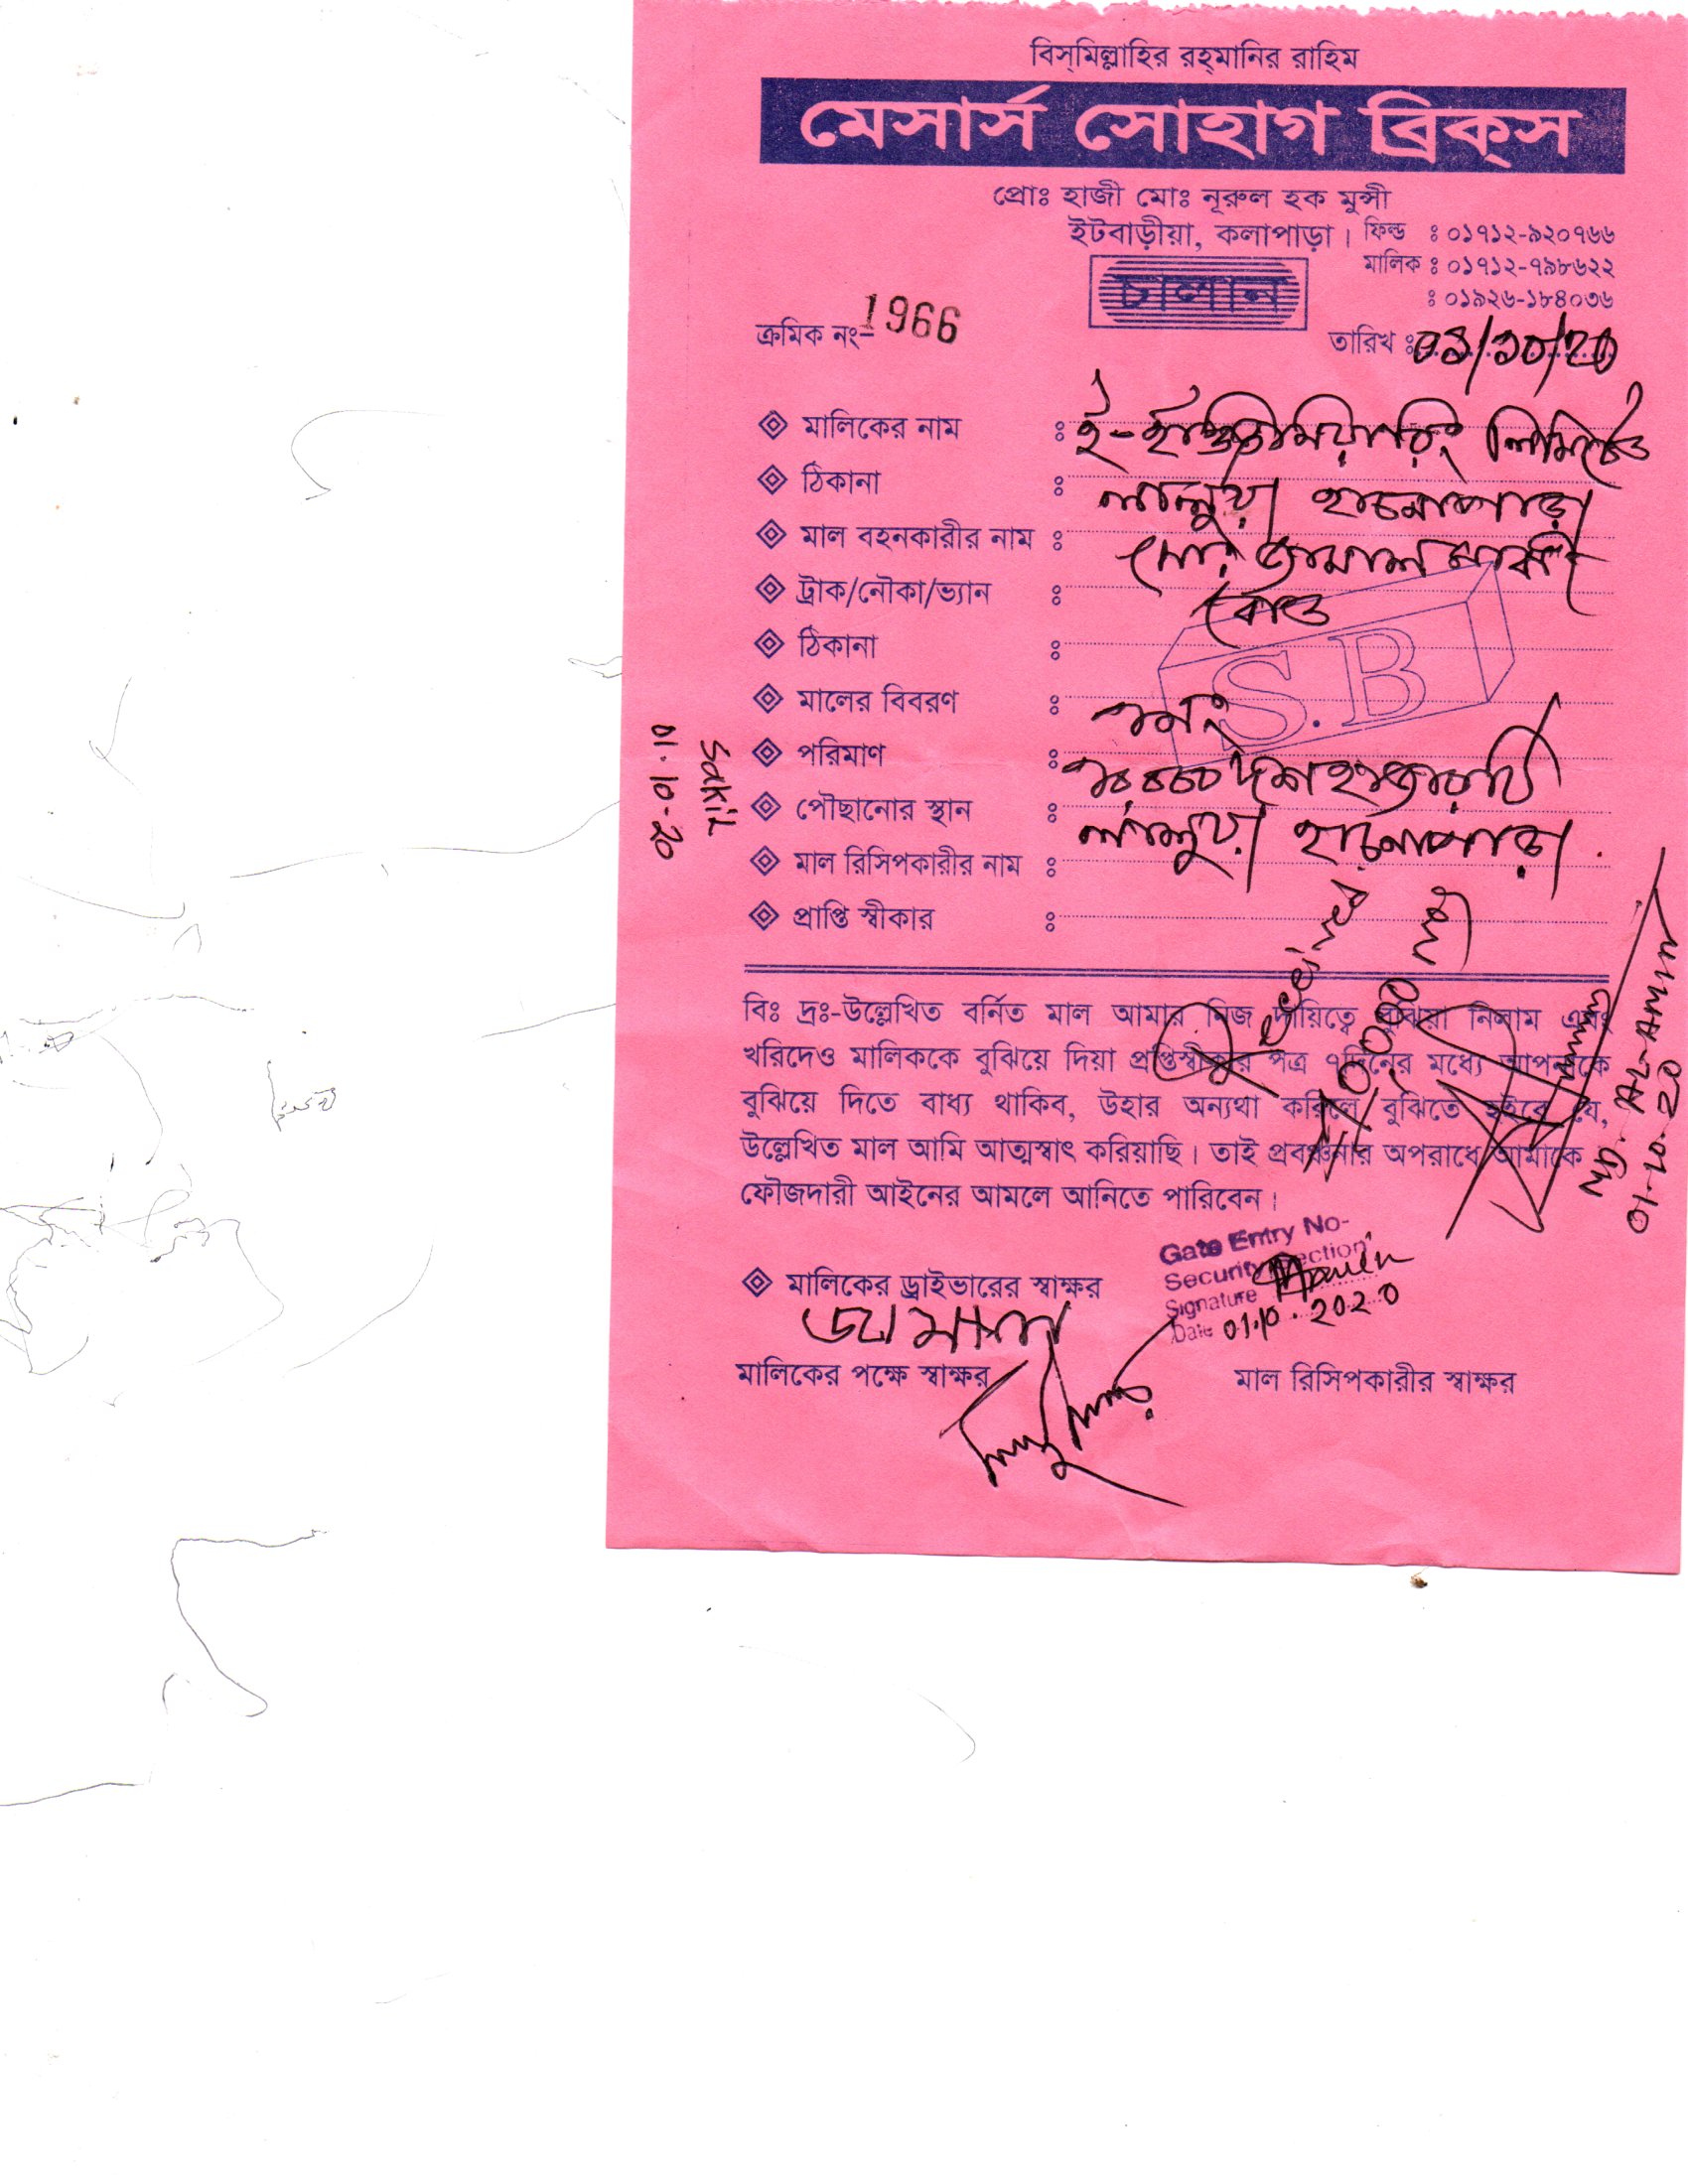 বিস্‌মিল্লাহির রহ্‌মানির রাহিম
মেসার্স সোহাগ ব্রিক্‌স
প্রোঃ হাজী মোঃ নূরুল হক মুন্সী
ইটবাড়ীয়া, কলাপাড়া। ফিল্ড ঃ ০১৭১২-৯২০৭৬৬
মালিক ঃ ০১৭১২-৭৯৮৬২২
ঃ ০১৯২৬-১৮৪০৩৬
চালান
ক্রমিক নং= 1966
তারিখ ঃ ০১/১০/২০
মালিকের নাম ঃ ই-ইঞ্জিনিয়ারিং লিমিটেড
ঠিকানা ঃ লালুয়া হাচনাপাড়া
মাল বহনকারীর নাম ঃ মোঃ জামাল মাঝি
ট্রাক/নৌকা/ভ্যান ঃ বোট
ঠিকানা ঃ
মালের বিবরণ ঃ ১নং
S.B
পরিমাণ ঃ ১০০০০ দশ হাজারটি
পৌছানোর স্থান ঃ লালুয়া হাচনাপাড়া
মাল রিসিপকারীর নাম ঃ
প্রাপ্তি স্বীকার ঃ
Sakil
01.10.20
Received
বিঃ দ্রঃ-উল্লেখিত বর্নিত মাল আমার নিজ দায়িত্বে বুঝিয়া নিলাম এবং
খরিদেও মালিককে বুঝিয়ে দিয়া প্রপ্তিস্বীকার পত্র ৭দিনের মধ্যে আপনাকে
বুঝিয়ে দিতে বাধ্য থাকিব, উহার অন্যথা করিলে বুঝিতে হইবে যে,
উল্লেখিত মাল আমি আত্মস্বাৎ করিয়াছি। তাই প্রবঞ্চনার অপরাধে আমাকে
ফৌজদারী আইনের আমলে আনিতে পারিবেন।
MD. AL-AMIN
01.10.20
Gate Entry No-
Security Section
Signature
Date 01.10.2020
মালিকের ড্রাইভারের স্বাক্ষর
জামাল
মালিকের পক্ষে স্বাক্ষর
মাল রিসিপকারীর স্বাক্ষর